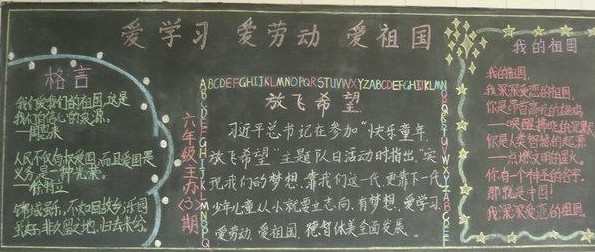 爱学习 爱劳动 爱祖国
格言
我们爱我们的祖国,这是
我们自信心的源泉。
—周恩来
人民不仅有权爱国,而且爱国是
义务,是一种光荣。
—徐特立
锦城虽乐,不如回故乡;乐园
虽好,非久留之地,归去来兮。
六年级主办(3)期
ABCDEFGHIJKLMNOPQRSTUVWXYZABCDEFGHIJKLMN
放飞希望
习近平总书记在参加“快乐童年,
放飞希望”主题队日活动时指出,“实
现我们的梦想,靠我们这一代,更靠下一代。
少年儿童从小就要立志向、有梦想,爱学习、
爱劳动、爱祖国,德智体美全面发展。
我的祖国
我的祖国,
我深深爱恋的祖国。
你是
你是人类智慧的起源,
—点燃文明的星火。
你有一个神圣的名字,
那就是中国!
我深深爱恋的祖国。